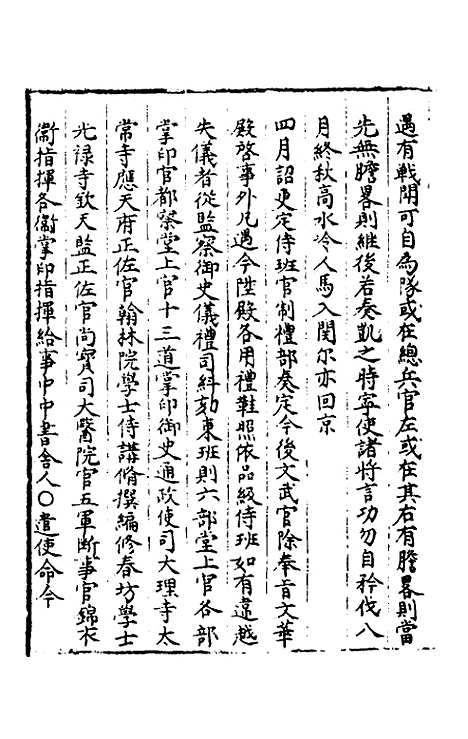 遇有戰鬪可自為隊或在總兵官左或在其右有膽畧則當
先無膽畧則継後若奏凱之時寧使諸將言功勿自矜伐八
月終秋高水冷人馬入関尔亦回京
四月詔更定侍班官制禮部奏定今後文武官除奉旨文華
殿啓事外凡遇今陞殿各用禮鞋照依品級侍班如有違越
失儀者從監察御史儀禮司糾劾東班則六部堂上官各部
掌印官都察堂上官十三道掌印御史通政使司大理寺太
常寺應天府正佐官翰林院學士侍講脩撰編修春坊學士
光禄寺欽天監正佐官尚寶司大醫院官五軍断事官錦衣
衞指揮各衞掌印指揮給事中中書舍人○遣使命今